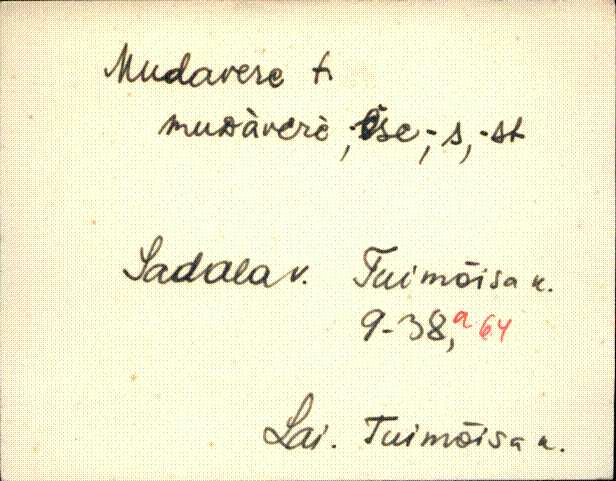 Mudavere t.
muᴅàverè, -se, -s, -st
Sadala v. Tuimõisa k.
9-38, a 64
Lai. Tuimõisa k.